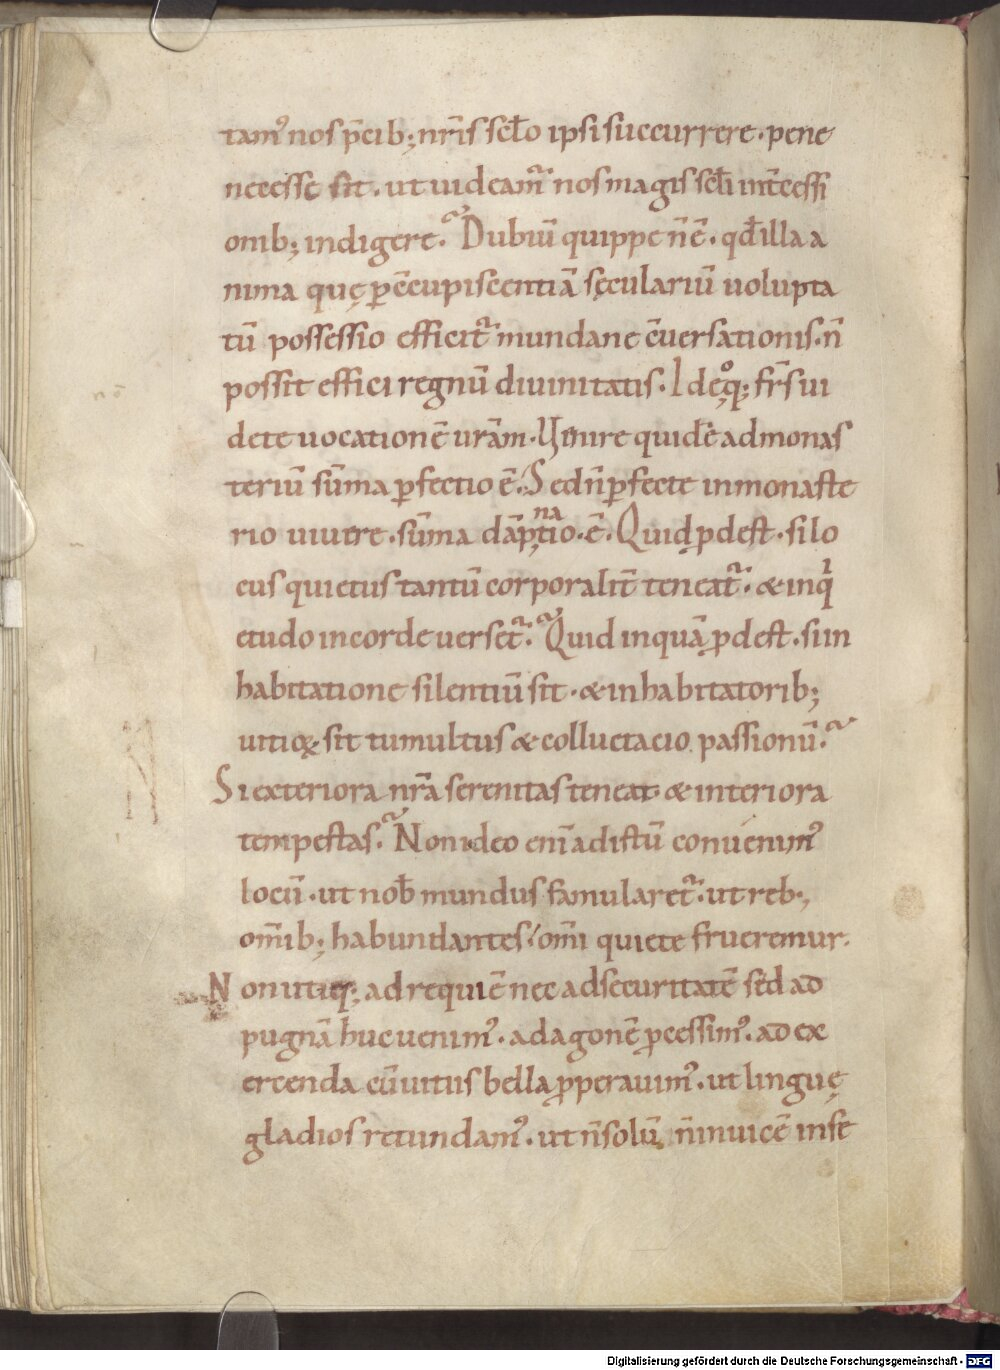 tam᷒ nos p̄cib; nr̄is sc̄lo ipsi succurrere · pene
necesse sit · ut uideam᷒ nos magis scłi int̄cessi
onib; indigere. Dubiū quippe n̄ ē · qđ illa a
nima quę ꝑ c̄cupiscentiā sęculariū uolupta
tū possessio efficit᷑ mundane c̄uersationis · n̄
possit effici regnū diuinitatis. Ideoq; fr̄s ui
dete uocationē ur̄am · Uenire quidē ad monas
teriū sūma ꝑfectio ē. Sed n̄ ꝑfecte in monaste
rio uiuere · sūma dāpnatio · ē · Quid ꝓdest · si lo
cus quietus tantū corporalit̄ teneat᷑ · & inq
etudo in corde uerset᷑. Quid inquā ꝓdest · si in
habitatione silentiū sit · & in habitatorib;
uitioꝝ sit tumultus & colluctacio passionū.
Si exteriora nr̄a serenitas teneat & interiora
tempestas. Non ideo eni ad istū conuenim᷒
locū · ut nob̄ mundus famularet᷑ · ut reb;
om̄ib; habundantes om̄i quiete frueremur.
Non utiq; ad requiē nec ad securitatē sed ad
pugnā huc uenim᷒ · ad agonē ꝓcessim᷒ · ad ex
ercenda cū uitiis bella ꝓperauim᷒ · ut linguę
gladios retundam᷒ · ut n̄ solū n̄ inuicē infe
Digitalisierung gefördert durch die Deutsche Forschungsgemeinschaft - DFG